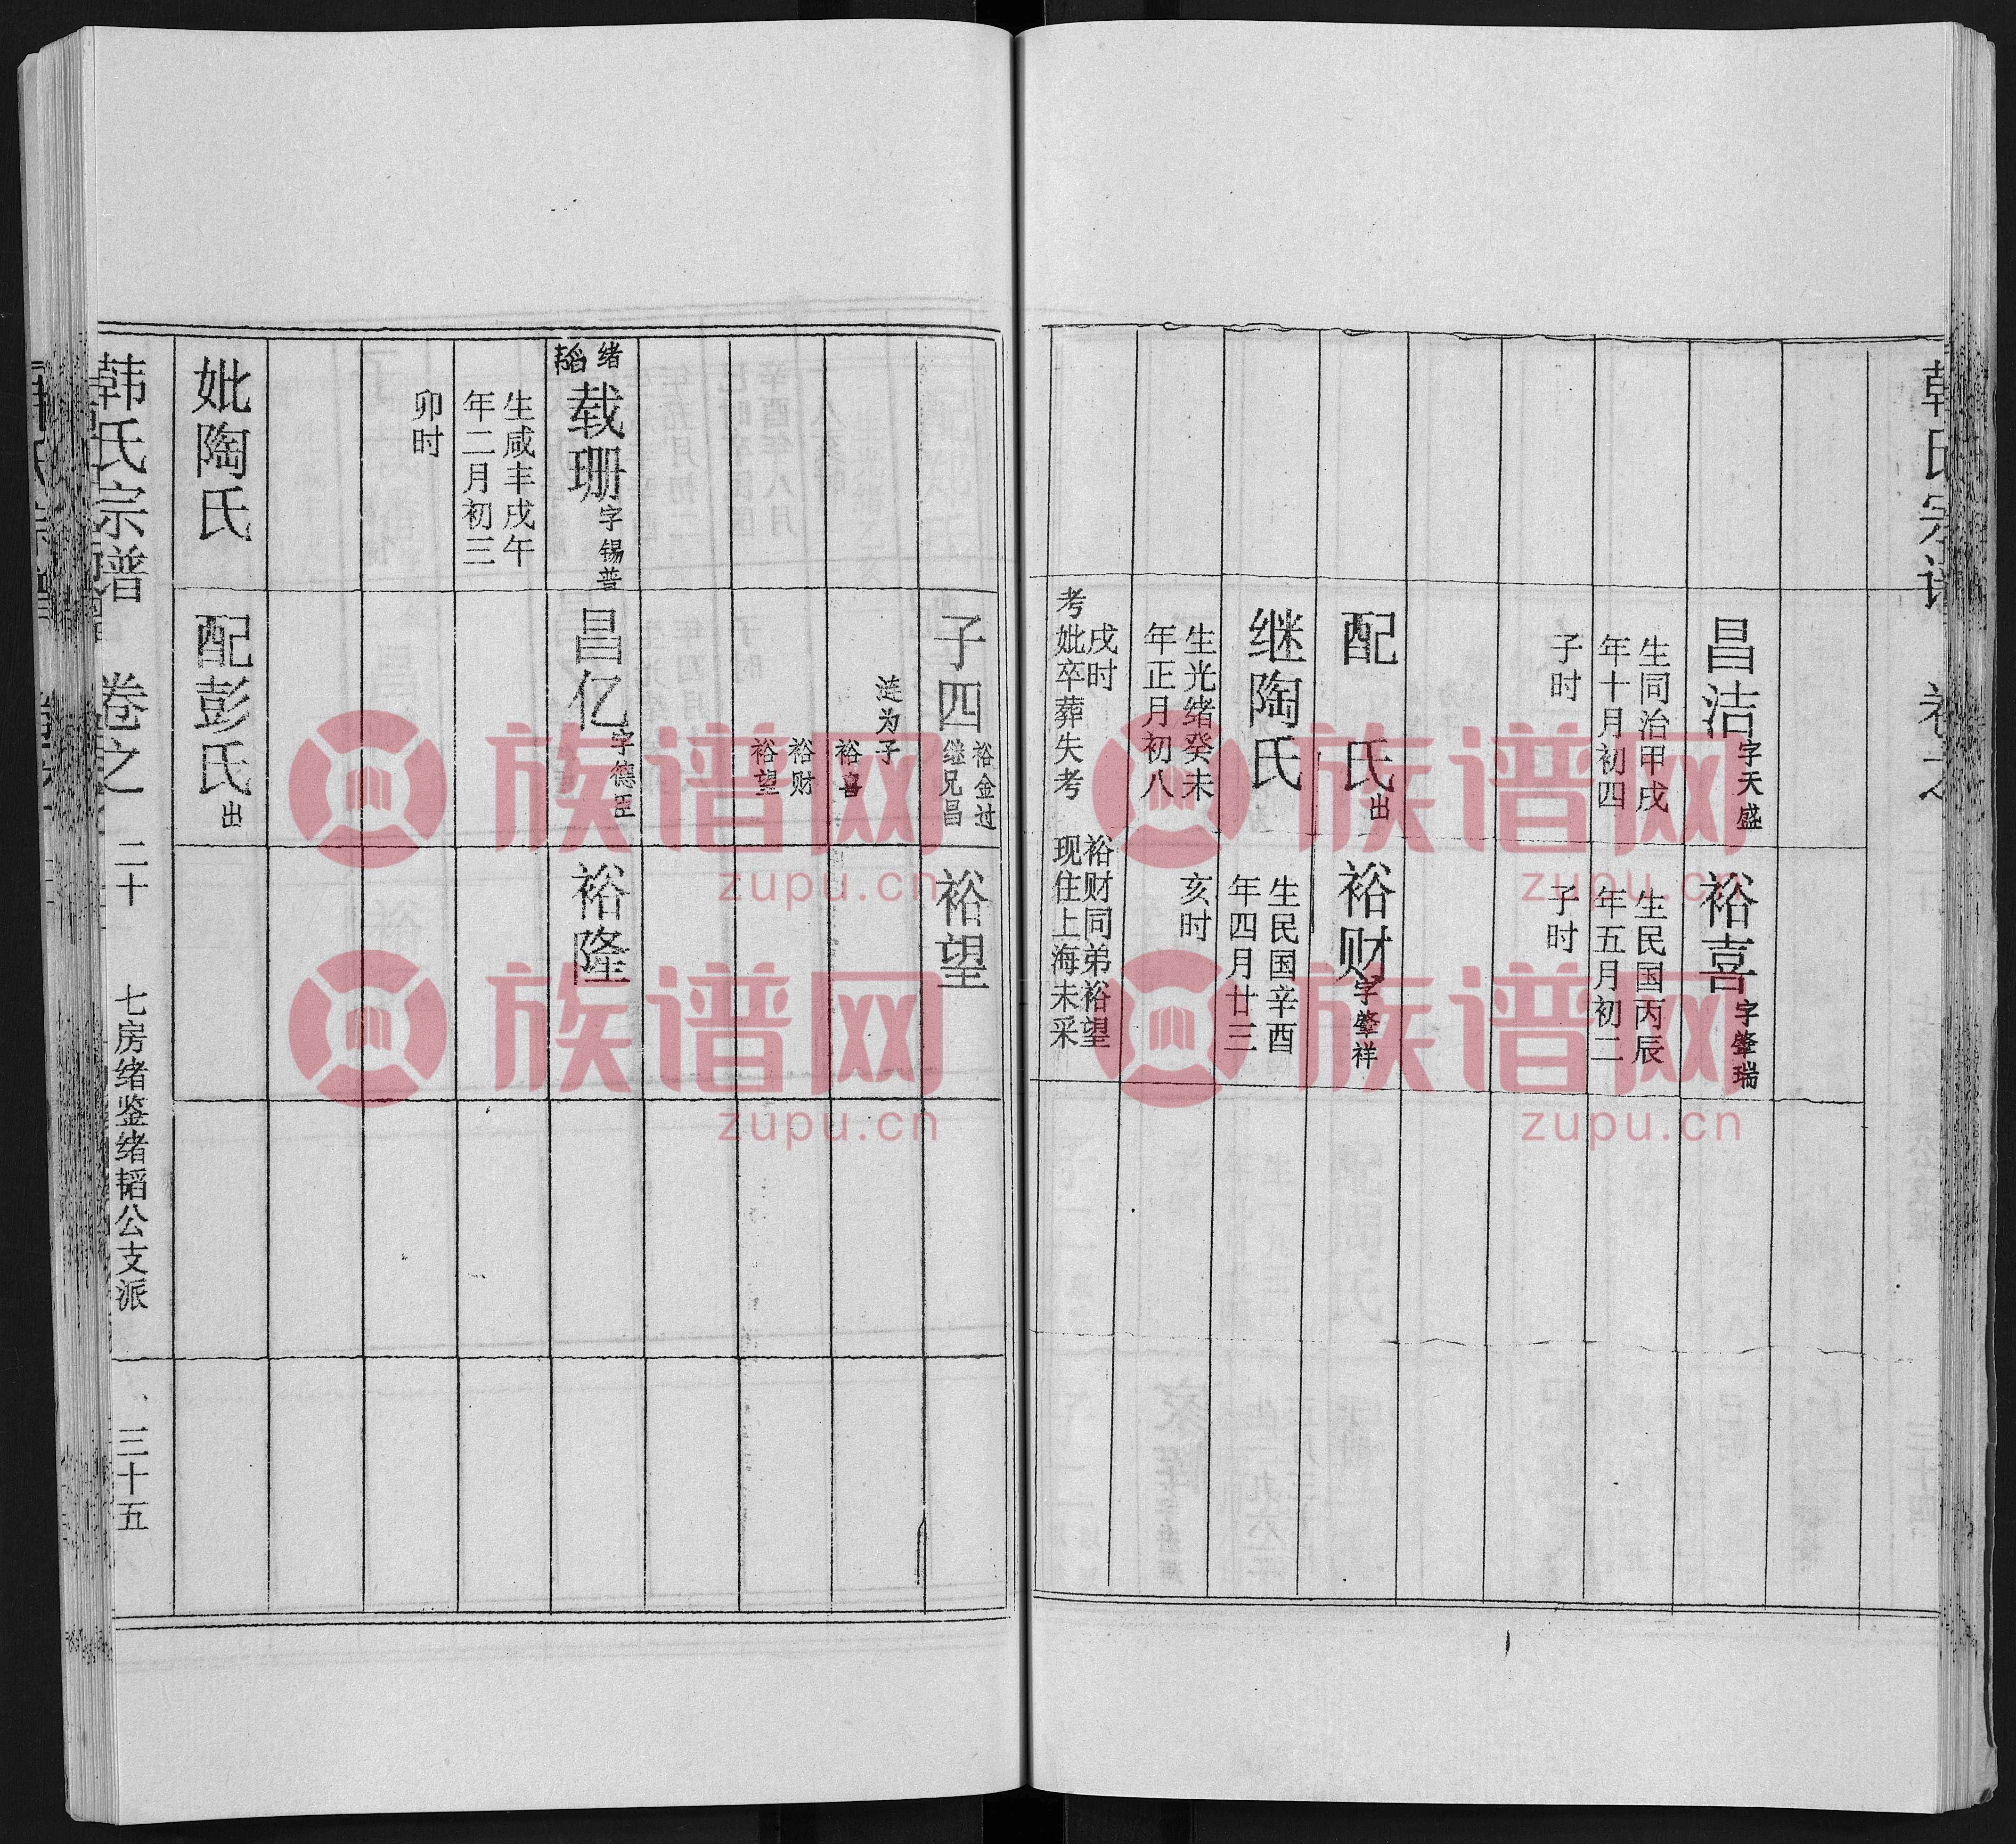 韩氏宗谱 卷之
昌洁 字天盛
生同治甲戌
年十月初四
子时
配 氏 出
继陶氏
生光绪癸未
年正月初八
戌时
考妣卒葬失考
裕喜 字肇瑞
生民国丙辰
年五月初二
子时
裕财 字肇祥
生民国辛酉
年四月廿三
亥时
裕财同弟裕望
现住上海未采
子四 裕金过
继兄昌
涟为子
裕喜
裕财
裕望
裕望
绪韬
载珊 字锡普
生咸丰戊午
年二月初三
卯时
妣陶氏
昌亿 字德臣
配彭氏 出
裕隆
韩氏宗谱 卷之二十 七房绪鉴绪韬公支派 三十五
族谱网
zupu.cn
族谱网
zupu.cn
族谱网
zupu.cn
族谱网
zupu.cn